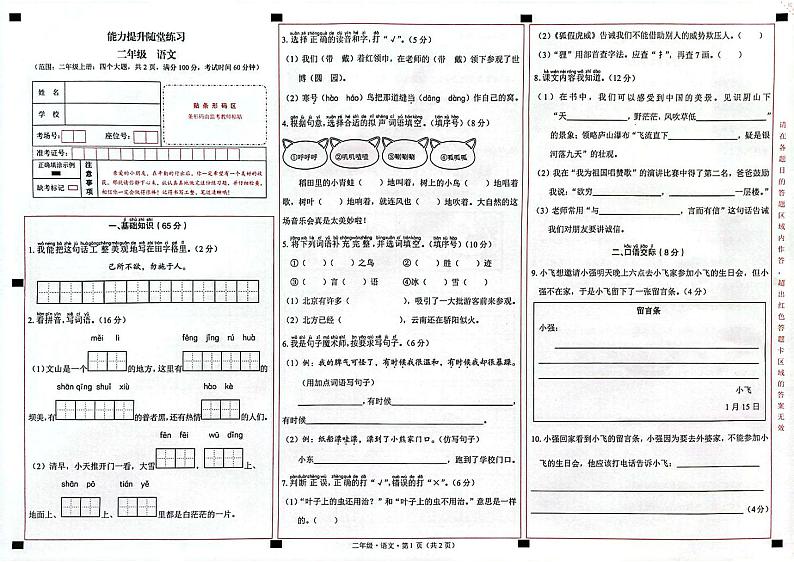 能力提升随堂练习
二年级 语文
(范围：二年级上册；四个大题，共2页，满分100分，考试时间60分钟)
姓 名
学 校
考场号：
座位号：
准考证号：
贴条形码区
条形码由监考教师粘贴
正确填涂示例
缺考标记
注意事项
一、基础知识(65分)
1.我能把这句话工整美观地写在田字格里。(2分)
己所不欲，勿施于人。
2.看拼音，写词语。(16分)
měi lì
fēng jǐng rú huà
(1)文山是一个 的地方，这里有
shān qīng shuǐ xiù
hào kè
坝美，有 的普者黑，还有热情 的人们。
fēn fēi
wū dǐng
(2)清早，小天推开门一看，大雪 ， 上、
shān pō
tián yě
地面上、 上、 里都是白茫茫的一片。
3.选择正确的读音和字，打“√”。(5分)
(1)我们(带 戴)着红领巾，在老师的(带 戴)领下参观了世
博(圆 园)。
(2)寒号(hào háo)鸟把那道缝当(dāng dàng)作自己的窝。
4.根据句意，选择合适的拟声词语填空。(填序号)(8分)
①呼呼呼
②叽叽喳喳
③唰唰唰
④呱呱呱
稻田里的小青蛙( )地叫着，树上的小鸟( )地唱着
歌，树叶( )地响着，就连风也( )地吹着。大自然的这
场音乐会真是太美妙啦！
5.将下列词语补充完整，并选词填空。(填序号)(10分)
①( )( )之鸟
②( )胜( )迹
③( )言( )语
④冰( )雪( )
(1)北京有许多( )，吸引了一大批游客前来参观。
(2)北方已经( )，云南还在骄阳似火。
6.我是句子魔术师，按要求写句子。(6分)
(1)例：我的脾气可怪了，有时候我很温和，有时候我却很暴躁。
(用加点词语写句子)
，有时候
有时候 。
(2)例：纸船漂哇漂，漂到了小熊家门口。(仿写句子)
小东 ，跑到了学校门口。
7.判断正误，正确的打“√”，错误的打“×”。(6分)
(1)“叶子上的虫还用治？”和“叶子上的虫不用治。”意思是一样
的。( )
(2)《狐假虎威》告诫我们不能借助别人的威势欺压人。( )
(3)“狸”用部首查字法，应查“犭”，再查7画。( )
8.课文内容我知道。(12分)
(1)在书中，我们可以感受到中国的美景。见识阴山下
“天 ，野茫茫，风吹草低 ”
的景象；领略庐山瀑布“飞流直下 ，疑是银
河落九天”的壮观。
(2)我在“我为祖国唱赞歌”的演讲比赛中得了第二名，爸爸鼓励
我说：“欲穷 ， 一层楼。”
(3)老师常用“与 ，言而有信”这句话告诫
我们对朋友要讲诚信。
二、口语交际(8分)
9.小飞想邀请小强明天晚上六点去小飞家参加小飞的生日会，但小
强不在家，于是小飞留下了一张留言条。(4分)
留言条
小强：
小飞
1月15日
10.小强回家看到小飞的留言条，小强因为要去外婆家，不能参加小
飞的生日会，他应该打电话告诉小飞：
(4分)
请在各题目的答题区域内作答，超出红色答题卡区域的答案无效
二年级·语文·第1页(共2页)